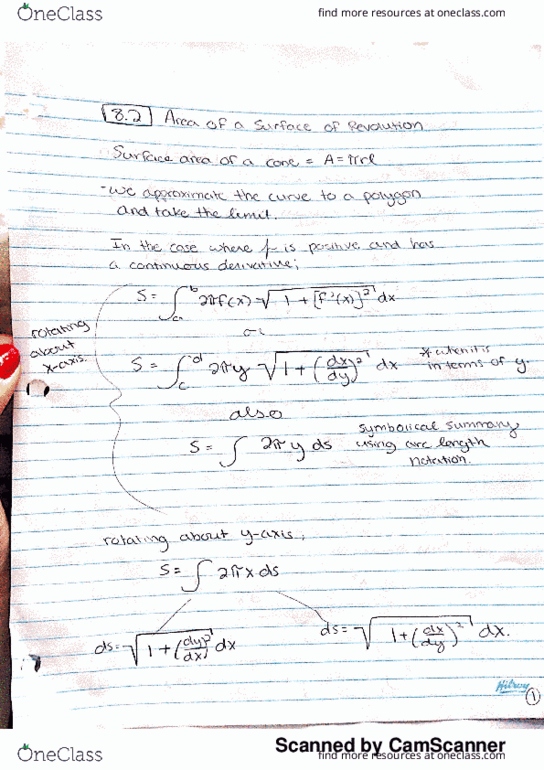 OneClass
find more resources at oneclass.com
8.2 Area of a Surface of Revolution
Surface area of a cone = A=πrl
-we approximate the curve to a polygon
and take the limit.
In the case where f is positive and has
a continuous derivative;
S= ∫_a^b 2πf(x) √(1+[f'(x)]²) dx
or
rotating
about
x-axis.
S= ∫_c^d 2πy √(1+(dx/dy)²) dx *when it is
in terms of y
also
S= ∫ 2πy ds symbolical summary
using arc length
notation.
rotating about y-axis;
S= ∫ 2πx ds
ds=√(1+(dy/dx)²) dx
ds=√(1+(dx/dy)²) dx.
Hilroy
1
Scanned by CamScanner
OneClass
find more resources at oneclass.com